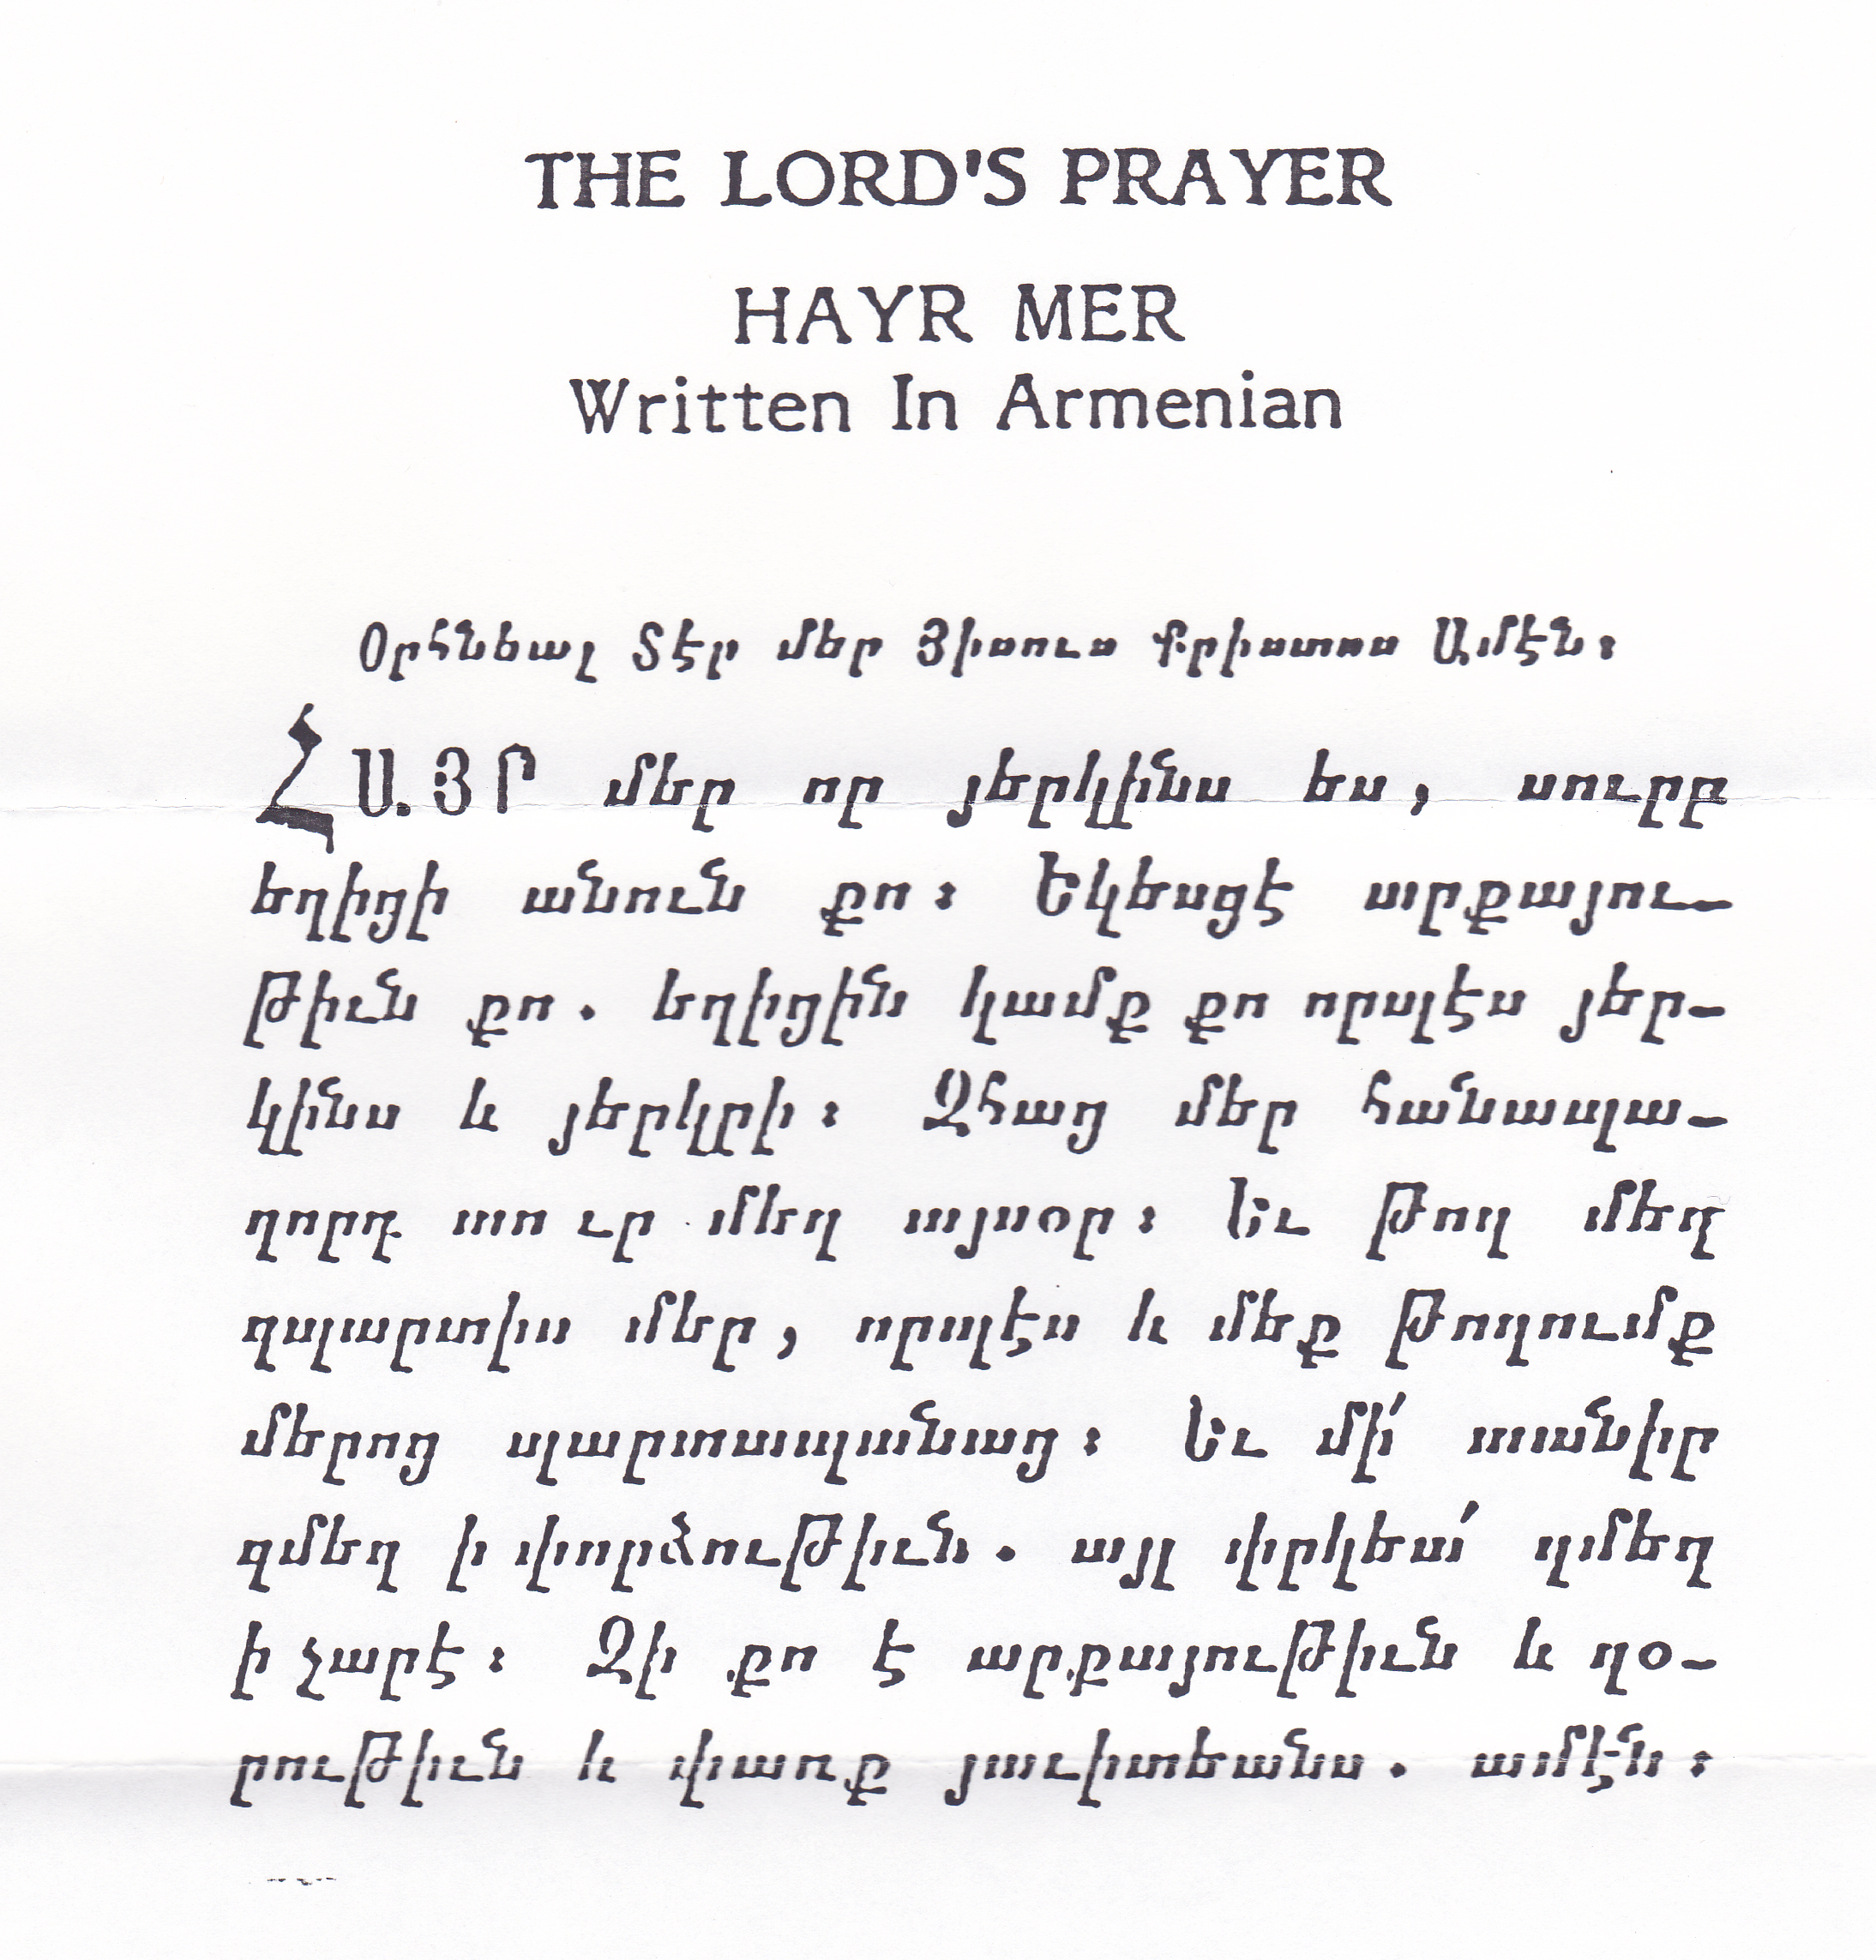 THE LORD'S PRAYER
HAYR MER
Written In Armenian
Օրհնեալ Տէր մեր Յիսուս Քրիստոս Ամէն։
ՀԱՅՐ մեր որ յերկինս ես, սուրբ
եղիցի անուն քո։ Եկեսցէ արքայու-
թիւն քո. եղիցին կամք քո որպէս յեր-
կինս և յերկրի։ Զհաց մեր հանապա-
զորդ տո ւր մեզ այսօր։ Եւ թող մեզ
զպարտիս մեր, որպէս և մեք թողումք
մերոց պարտապանաց։ Եւ մի՛ տանիր
զմեզ ի փորձութիւն. այլ փրկեա՛ զմեզ
ի չարէ։ Զի քո է արքայութիւն և զօ-
րութիւն և փառք յաւիտեանս. ամէն։